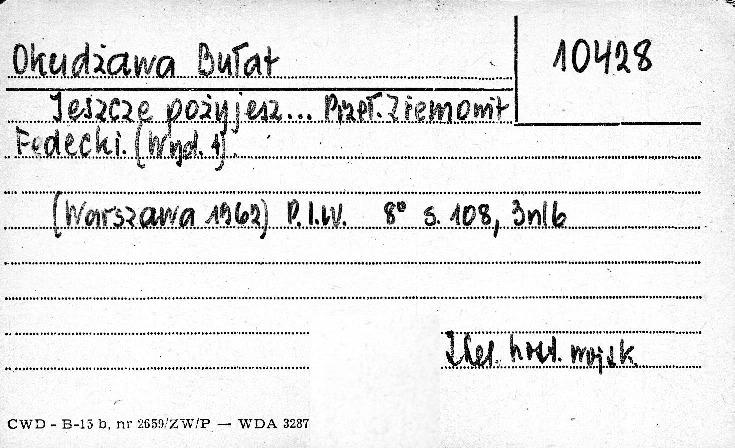 Okudżawa Bułat
10428
Jeszcze pożyjesz... Przeł. Ziemowit
Fedecki. (Wyd. 1)
(Warszawa 1962) P.I.W. 8° s. 108, 3nlb
wojsk.
CWD - B-15 b, nr 2659/ZW/P — WDA 3287